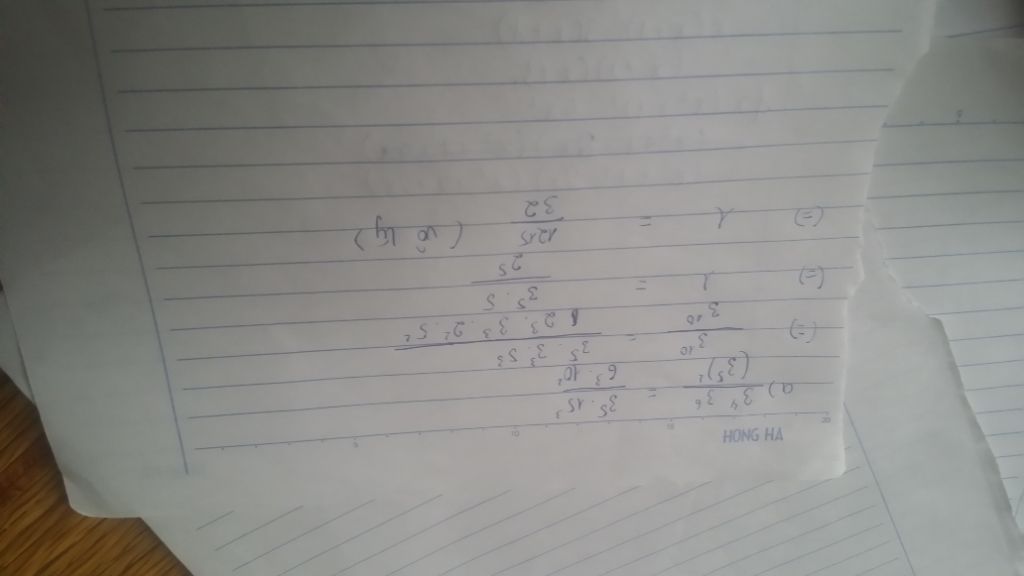 HONG HA
a) 3⁴ 3⁶ / (3⁵)² = 3⁵ . 15³ / 6³ . 10²
(=) 3¹⁰ / 3¹⁰ = 3⁵ . 3³ 5³ / 2³ . 3³ . 2² . 5²
(=) 1 = 3⁵ . 5 / 2⁵
(=) 1 = 1215 / 32 (vô lý)